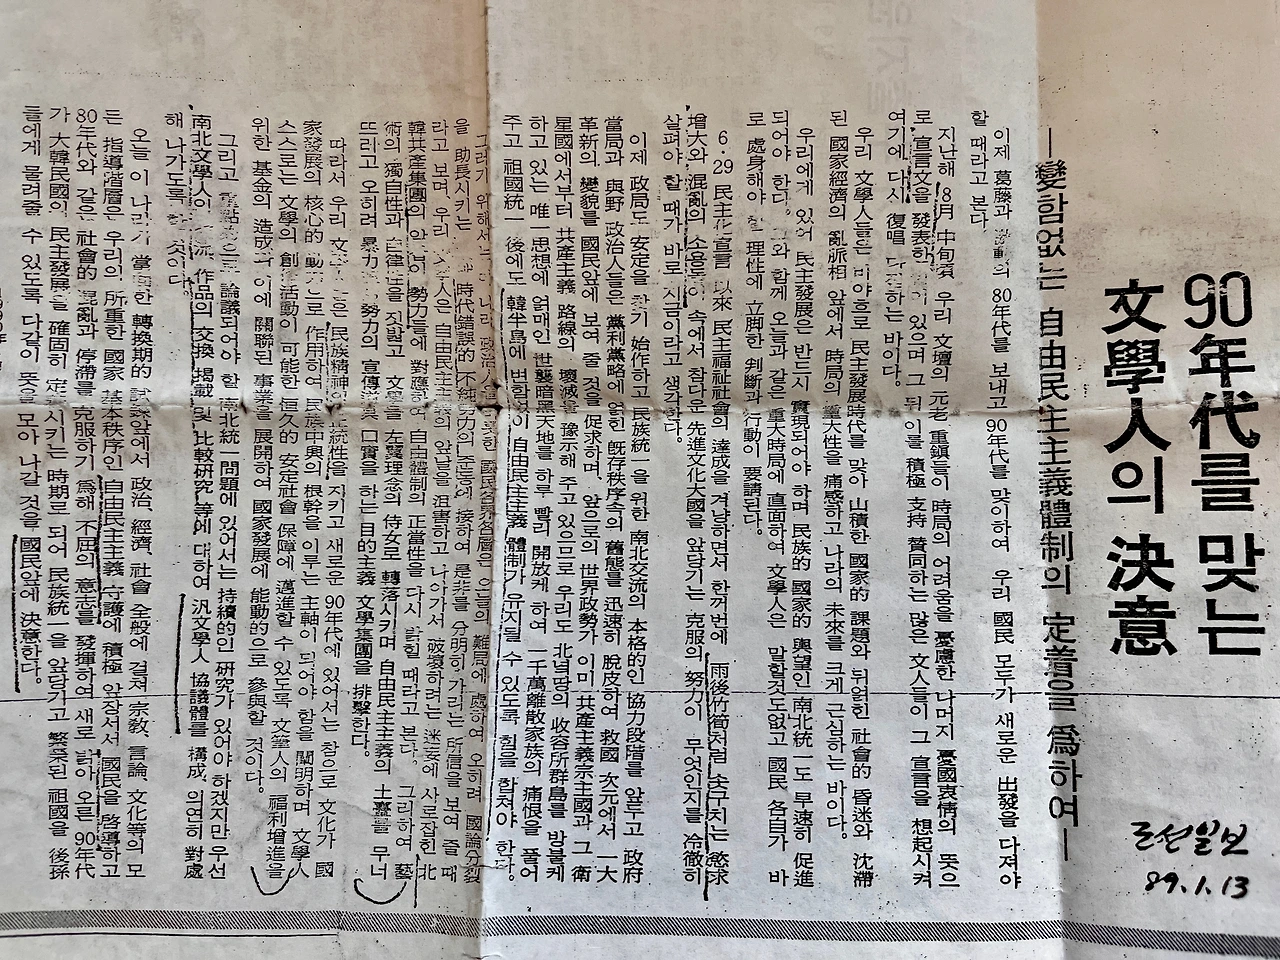 90年代를 맞는
文學人의 決意
―變함없는 自由民主主義體制의 定着을 爲하여―
조선일보
89.1.13
이제 葛藤과 激動의 80年代를 보내고 90年代를 맞이하여 우리 國民 모두가 새로운 出發을 다져야
할 때라고 본다.
지난해 8月 中旬頃 우리 文壇의 元老 重鎭들이 時局의 어려움을 憂慮한 나머지 憂國衷情의 뜻으
로 宣言文을 發表한 있으며 그 뒤이를 積極 支持 贊同하는 많은 文人들이 그 宣言을 想起시켜
여기에 다시 復唱 다짐하는 바이다.
우리 文學人들은 바야흐로 民主發展時代를 맞아 山積한 國家的 課題와 뒤얽힌 社會的 昏迷와 沈滯
된 國家經濟의 亂脈相 앞에서 時局의 重大性을 痛感하고 나라의 未來를 크게 근심하는 바이다.
우리에게 있어 民主發展은 반드시 實現되어야 하며 民族的 國家的 輿望인 南北統一도 早速히 促進
되어야 한다. 그와 함께 오늘과 같은 重大時局에 直面하여 文學人은 말할것도없고 國民 各自가 바
로 處身해야 할 理性에 立脚한 判斷과 行動이 要請된다.
6.29 民主化宣言 以來 民主福祉社會의 達成을 겨냥하면서 한꺼번에 雨後竹筍처럼 솟구치는 慾求
增大와 混亂의 소용돌이 속에서 참다운 先進文化大國을 앞당기는 克服의 努力이 무엇인지를 冷徹히
살펴야 할 때가 바로 지금이라고 생각한다.
이제 政局도 安定을 찾기 始作하고 民族統一을 위한 南北交流의 本格的인 協力段階를 앞두고 政府
當局과 與野 政治人들은 黨利黨略에 얽힌 旣存秩序속의 舊態를 迅速히 脫皮하여 救國 次元에서 一大
革新의 變貌를 國民앞에 보여 줄 것을 促求하며, 앞으로의 世界政勢가 이미 共產主義宗主國과 그 衛
星國에서부터 共產主義 路線의 壞滅을 豫示해 주고 있으므로 우리도 北녘땅의 收容所群島를 방불케
하고 있는 唯一思想에 얽매인 世襲暗黑天地를 하루 빨리 開放케 하여 一千萬離散家族의 痛恨을 풀어
주고 祖國統一 後에도 韓半島에 변함없이 自由民主主義 體制가 유지될 수 있도록 힘을 합쳐야 한다.
그러기 위해서는 나라 政治人을 國民各界各層은 오늘의 難局에 處하여 오히려 國論分裂
을 助長시키는 時代錯誤的 不純勢力의 준동에 接하여 是非를 分明히 가리는 所信을 보여 줄 때
라고 보며, 우리 文學人은 自由民主主義의 앞날을 沮害하고 나아가서 破壞하려는 迷妄에 사로잡힌 北
韓共產集團의 勢力들에 對應하여 自由體制의 正當性을 다시 밝힐 때라고 본다. 그리하여 藝
術의 獨自性과 自律性을 짓밟고 文學을 左翼理念의 侍女로 轉落시키며 自由民主主義의 土臺를 무너
뜨리고 오히려 暴力 勢力의 宣傳 口實을 하는 目的主義 文學集團을 排擊한다.
따라서 우리 文學은 民族精神의 正統性을 지키고 새로운 90年代에 있어서는 참으로 文化가 國
家發展의 核心的 動力으로 作用하여 民族中興의 根幹을 이루는 主軸이 되어야 함을 闡明하며 文學人
스스로는 文學의 創作活動이 可能한 恒久的 安定社會 保障에 邁進할 수 있도록 文學人의 福利增進을
위한 基金의 造成과 이에 關聯된 事業을 展開하여 國家發展에 能動的으로 參與할 것이다.
그리고 重點的으로 論議되어야 할 南北統一問題에 있어서는 持續的인 研究가 있어야 하겠지만 우선
南北文學人의 交流, 作品의 交換 揭載 및 比較研究 等에 대하여 汎文學人 協議體를 構成, 의연히 對處
해 나가도록 할 것이다.
오늘 이 나라가 當面한 轉換期的 試鍊앞에서 政治, 經濟, 社會 全般에 걸쳐 宗教, 言論, 文化等의 모
든 指導階層은 우리의 所重한 國家 基本秩序인 自由民主主義 守護에 積極 앞장서서 國民을 啓導하고
80年代와 같은 社會的 混亂과 停滯를 克服하기 爲해 不屈의 意志를 發揮하여 새로 밝아 오른 90年代
가 大韓民國의 民主發展을 確固히 定着시키는 時期로 되어 民族統一을 앞당기고 繁榮된 祖國을 後孫
들에게 물려줄 수 있도록 다같이 뜻을 모아 나갈 것을 國民앞에 決意한다.